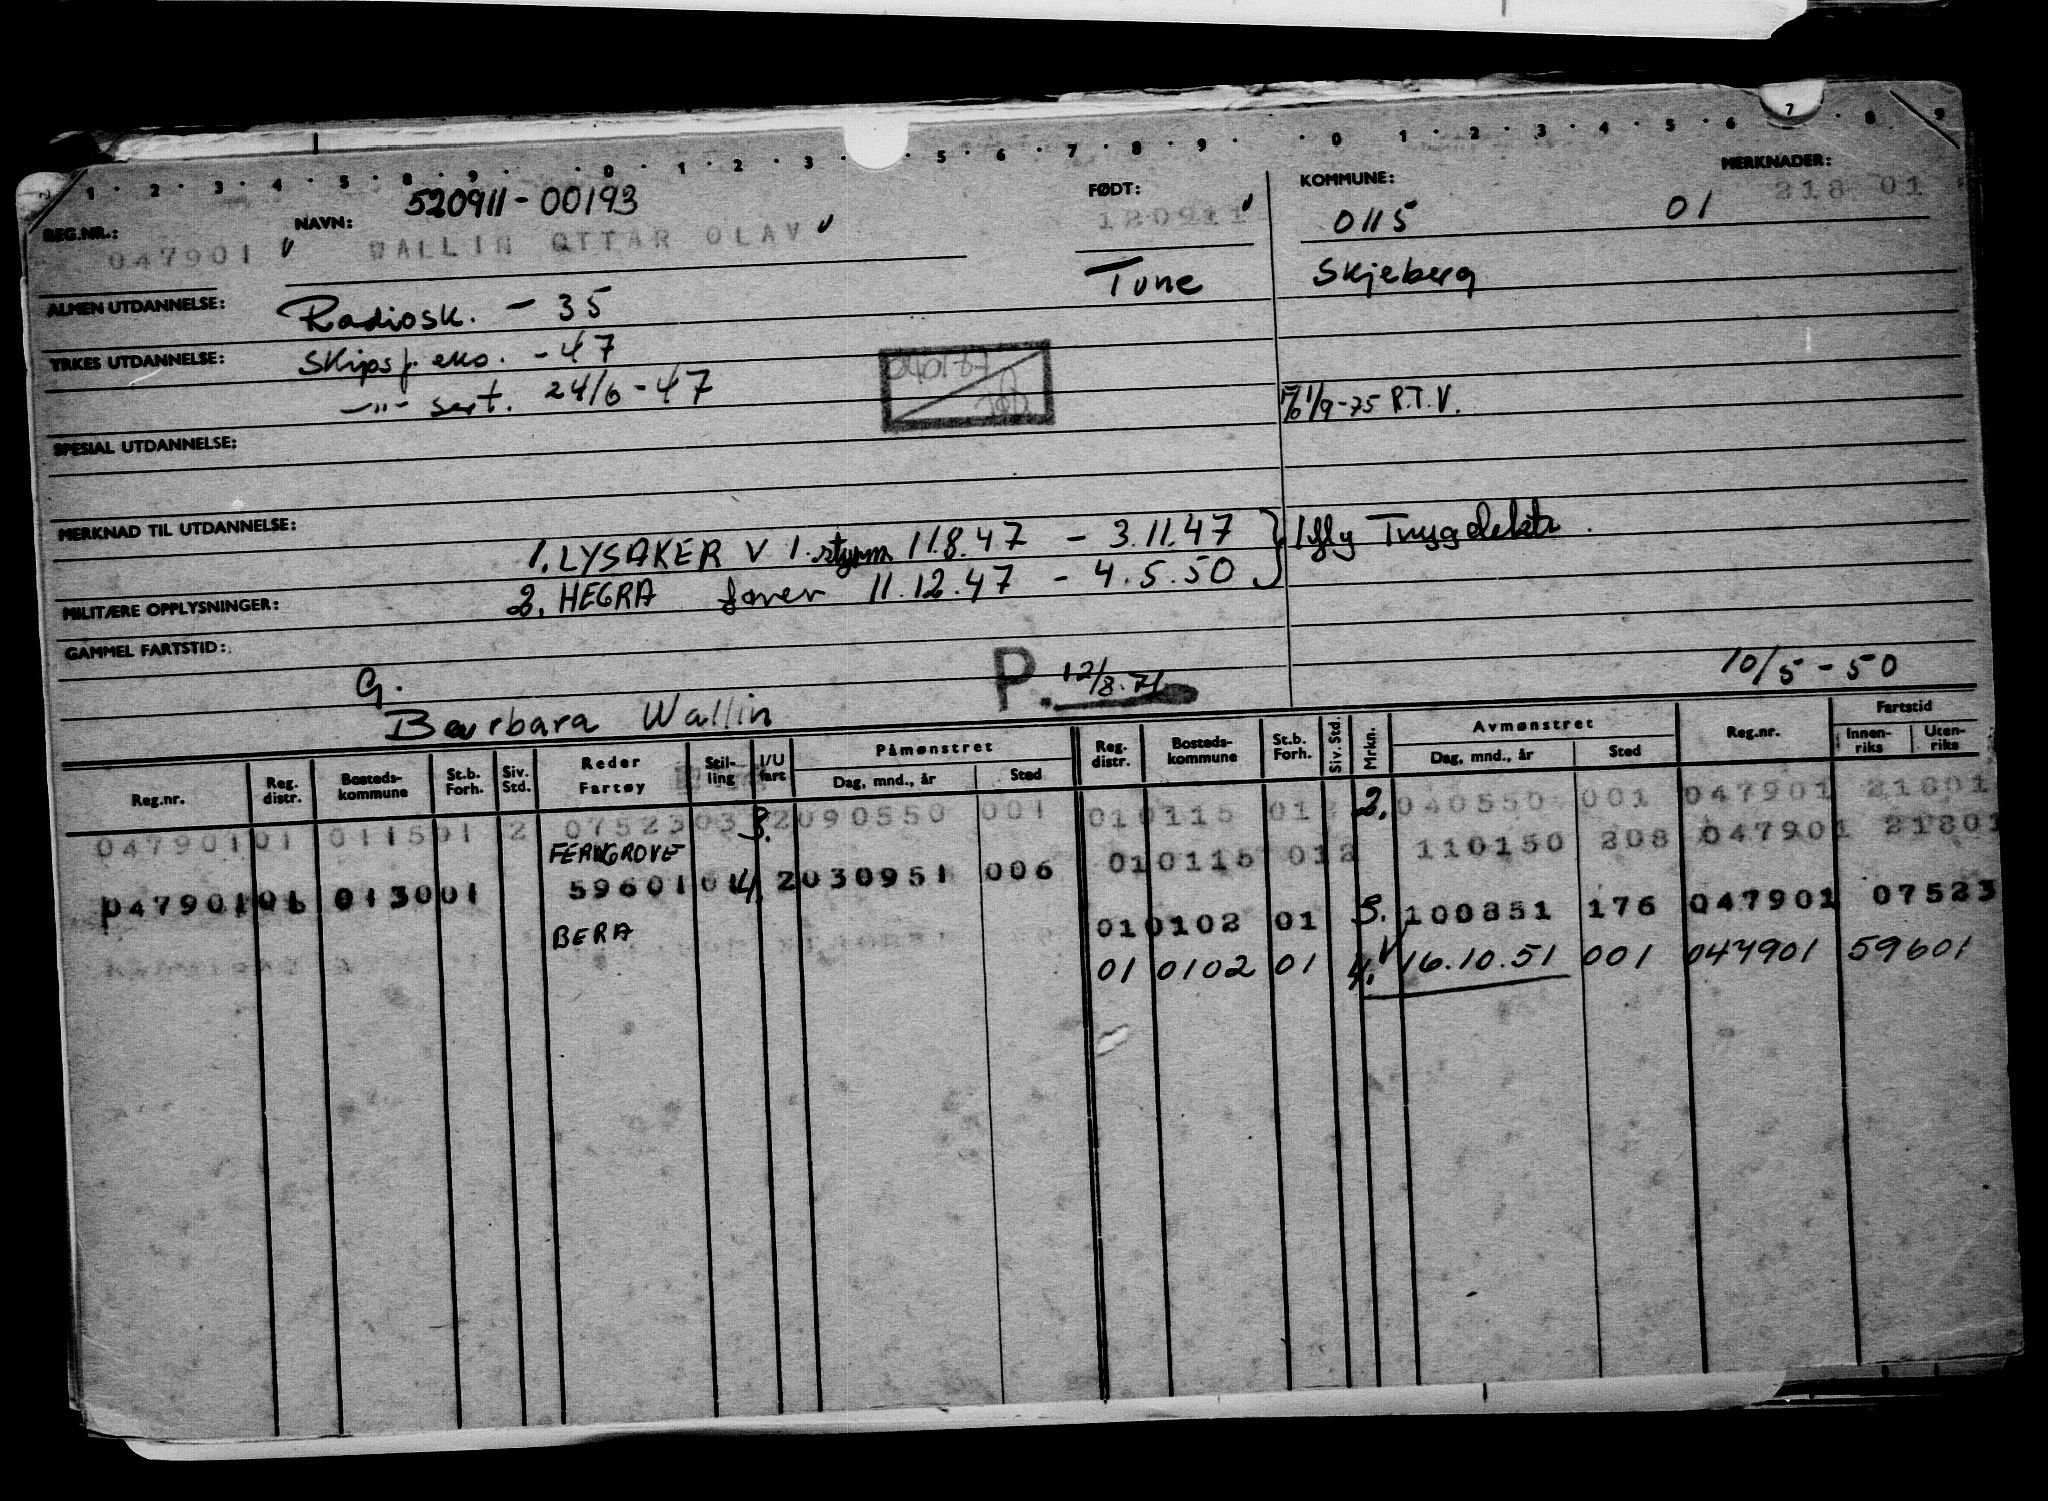 1 · 2 · 3 · 4 · 5 · 8 · 9 · · 0 · 1 · 2 · 3 · · 5 · 6 · 7 · 8 · 9 · · 0 · 1 · 2 · 3 · 4 · 5 · 6 · 7 · 8 · 9
MERKNADER:
REG.NR.: NAVN: 520911-00193 FØDT: KOMMUNE: 0115 01 218 01
047901 WALLIN OTTAR OLAV 120911
Tune Skjeberg
ALMEN UTDANNELSE: Radiosk. - 35
YRKES UTDANNELSE: Skipsf. eks. - 47
-"- sert. 24/6-47
1/9-75 R.T.V.
SPESIAL UTDANNELSE:
MERKNAD TIL UTDANNELSE:
1. LYSAKER V 1. styrm 11.8.47 - 3.11.47
2. HEGRA fører 11.12.47 - 4.5.50
Iflg Trygdektr.
MILITÆRE OPPLYSNINGER:
GAMMEL FARTSTID:
G. P. 12/8.71 10/5-50
Barbara Wallin
Reg.nr. Reg. distr. Bosteds-kommune St.b. Forh. Siv. Std. Reder Fartøy Stil-ling I/U fart Påmønstret Dag, mnd., år Sted Reg. distr. Bosteds-kommune St.b. Forh. Siv. Std. Mrkn. Avmønstret Dag, mnd., år Sted Reg.nr. Fartstid Innen-riks Uten-riks
047901 01 0115 01 2 07523 03 3. 2 090550 001 01 0115 01 2 2. 040550 001 047901 21801
FERNGROVE 01 0115 01 2 110150 208 047901 21801
047901 01 0130 01 59601 01 4. 2 030951 006 01 0102 01 3. 100851 176 047901 07523
BERA 01 0102 01 4. 16.10.51 001 047901 59601